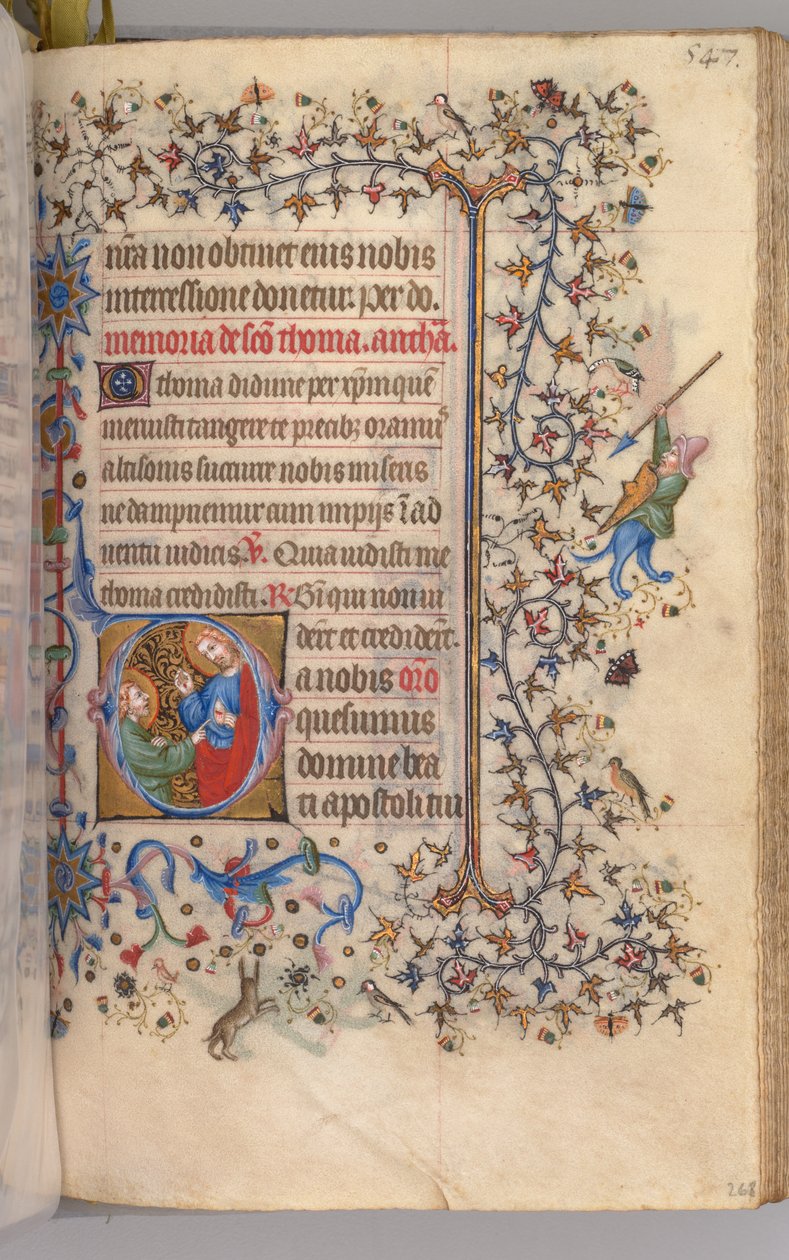 547.
nr̄a non obtinet eius nobis
intercessione donetur. Per do.
memoria de sc̄o thoma. antha̅.
O thoma didime per xp̄m quē
meruisti tangere te precibꝫ oramꝰ
altisonis succurre nobis miseris
ne dampnemur cum impijs ī ad
uentu iudicis. V̄. Quia uidisti me
thoma credidisti. R Bn̄i qui non ui
der̄t et credider̄t.
a nobis or̄o
quesumus
domine bea
ti apostoli tui
268